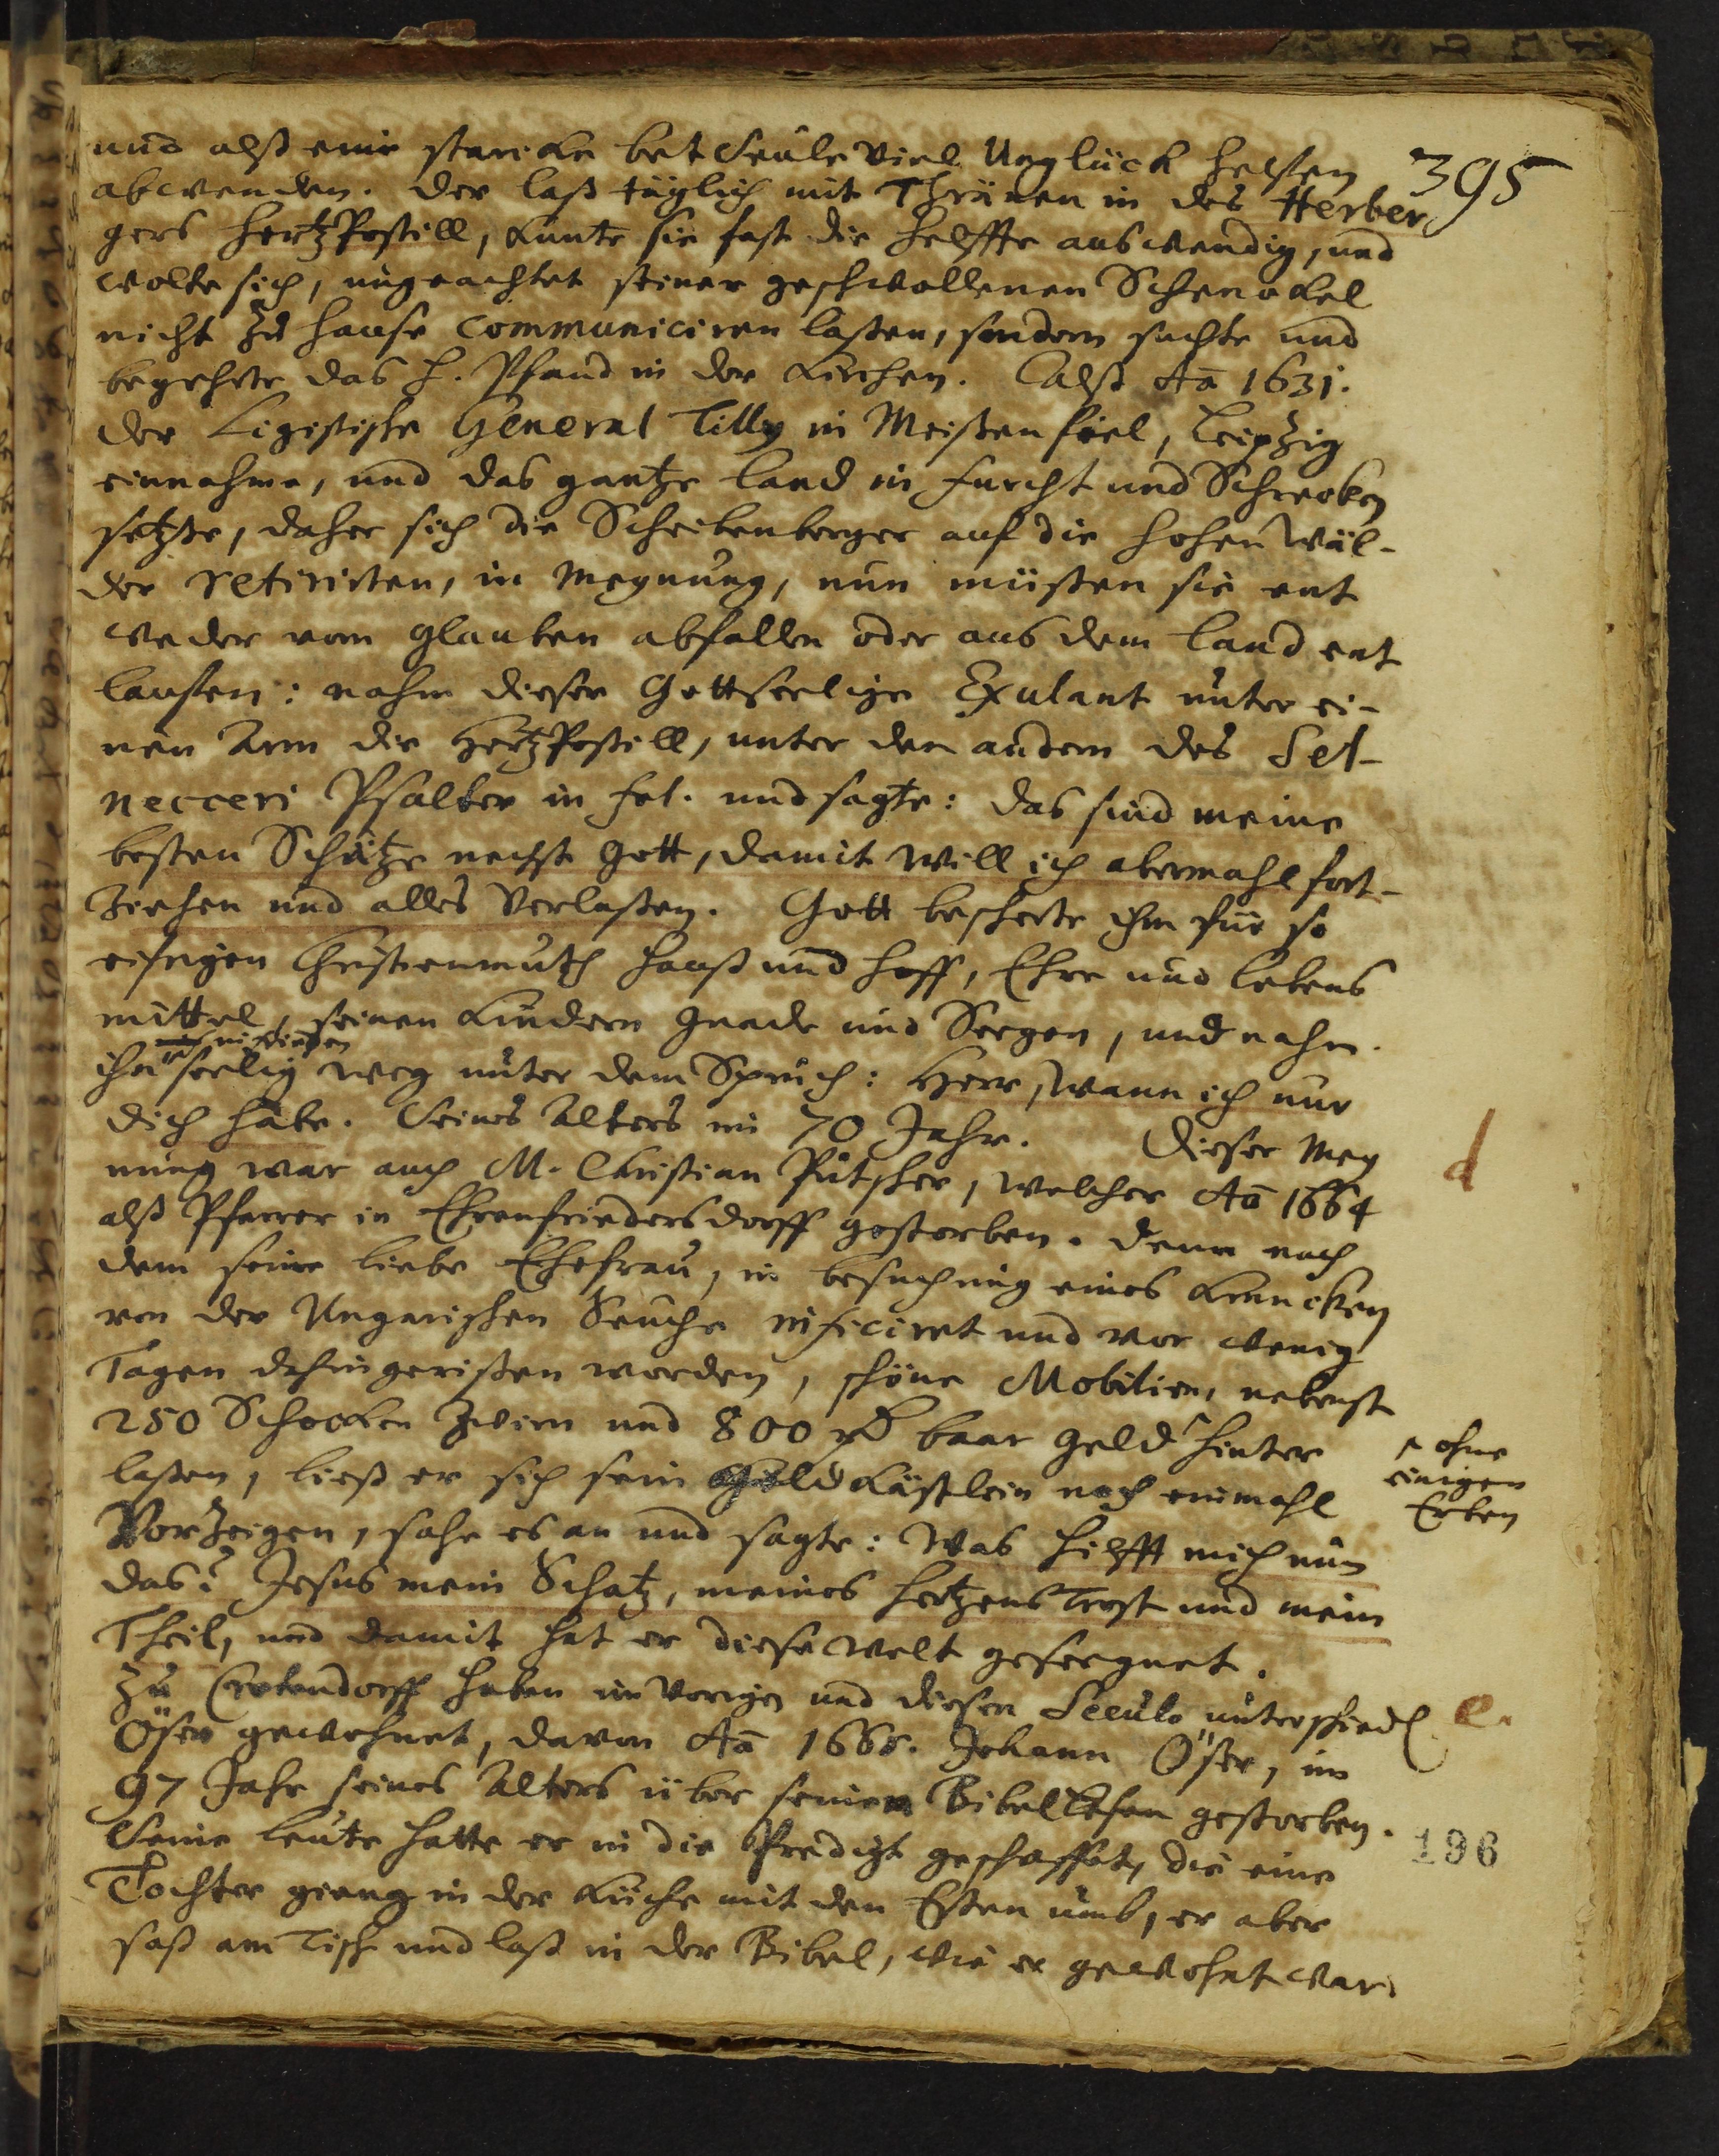 395
und alß eine starcke betseule viel Unglück helffen
abwenden. Der laß täglich mit Thränen in des Herber
gers HertzPostill, kunte sie fast die helffte auswendig, und
wolte sich, ungeachtet seiner geschwollenen Schenckel
nicht zu hause communiciren laßen, sondern suchte und
begehrte das H. Pfand in der Kirchen. Alß Ao 1631.
der Ligistische General Tilly in Meißen fiel, Leipzig
einnahme, und das gantze land in furcht und Schrecken
setzte, daher sich die Scheibenberger auf die hohen Wäl-
der retirirten, in Meynung, nun müßen sie ent
weder vom glauben abfallen oder aus dem land ent
lauffen: nahm dieser Gottseelige Exulant unter ei-
nen Arm die HertzPostill, unter den andern des Sel-
necceri Psalter in fol. und sagte: das sind meine
besten Schätze nechst Gott, damit will ich abermahl fort-
ziehen und alles verlaßen. Gott bescherte ihm für so
eifrigen Christenmuth hauß und hoff, Ehre und lebens
mittel, seinen Kindern Gnade und Seegen, und nahm
ihn seelig weg unter dem Spruch: Herr, wann ich nur
dich habe. Seines Alters im 70 Jahr. Dieser Mey
nung war auch M. Christian Pütscher, welcher Ao 1664
alß Pfarrer in Ehrenfriedersdorff gestorben. Denn nach
dem seine liebe Ehefrau, in besuchung eines Krancken
von der Ungarischen Seuche inficiret und vor wenig
Tagen dahingerißen worden, schöne Mobilien, nebenst
250 Schocken Zwirn und 800 baar geld hinter
laßen, ließ er sich sein Geld Kästlein noch einmahl
Vorzeigen, sahe es an und sagte: Was hilfft mich nun
das? Jesus mein Schatz, meines hertzens Trost und mein
Theil, und damit hat er diese Welt gesegnet.
Zu Crotendorff haben im vorigen und diesen Seculo unterschiedl
Öser gewohnet, davon Ao 1668. Johann Öser, im
97 Jahr seines Alters über seinem Bibellesen gestorben.
Seine leute hatte er in die Predigt geschaffet, die eine
Tochter gieng in der Küche mit den Eßen umb, er aber
saß am Tisch und laß in der Bibel, wie er gewohnt war.
d
ohne
einigen
Erben
e.
196